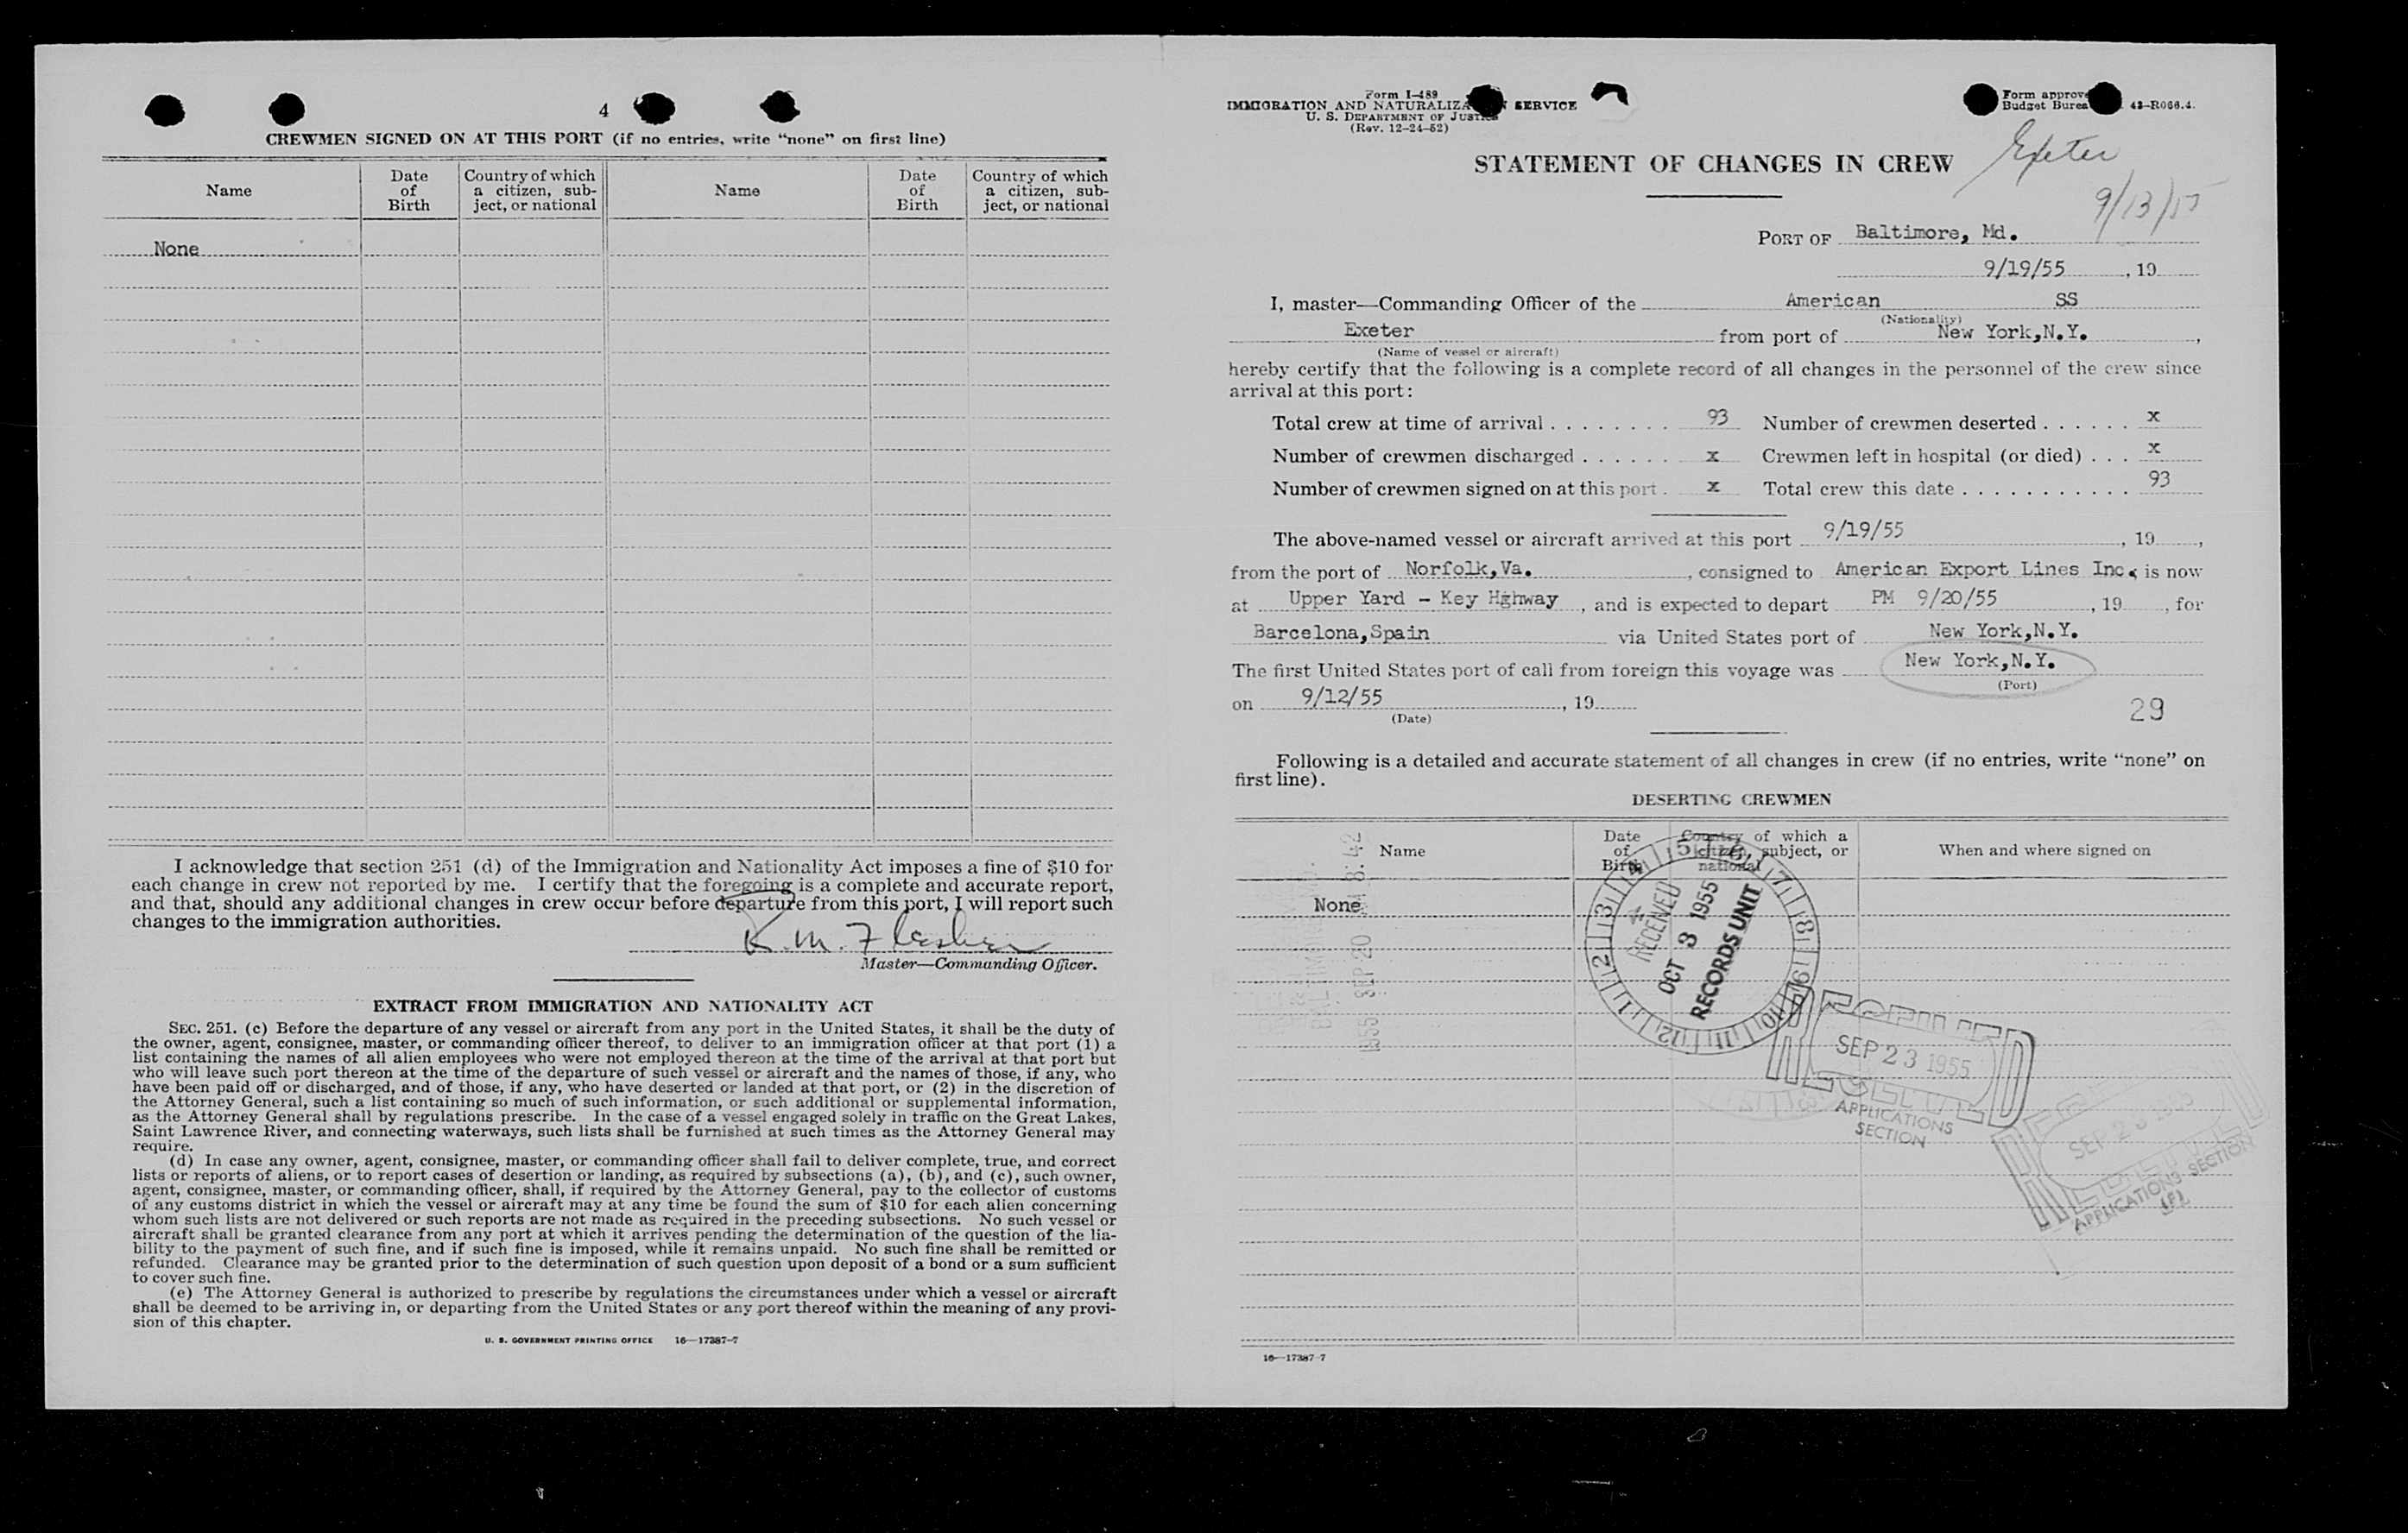 4
CREWMEN SIGNED ON AT THIS PORT (if no entries, write “none” on first line)
Name
Date of Birth
Country of which a citizen, subject, or national
Name
Date of Birth
Country of which a citizen, subject, or national
None
I acknowledge that section 251 (d) of the Immigration and Nationality Act imposes a fine of $10 for
each change in crew not reported by me. I certify that the foregoing is a complete and accurate report,
and that, should any additional changes in crew occur before departure from this port, I will report such
changes to the immigration authorities.
Master—Commanding Officer.
EXTRACT FROM IMMIGRATION AND NATIONALITY ACT
SEC. 251. (c) Before the departure of any vessel or aircraft from any port in the United States, it shall be the duty of
the owner, agent, consignee, master, or commanding officer thereof, to deliver to an immigration officer at that port (1) a
list containing the names of all alien employees who were not employed thereon at the time of the arrival at that port but
who will leave such port thereon at the time of the departure of such vessel or aircraft and the names of those, if any, who
have been paid off or discharged, and of those, if any, who have deserted or landed at that port, or (2) in the discretion of
the Attorney General, such a list containing so much of such information, or such additional or supplemental information,
as the Attorney General shall by regulations prescribe. In the case of a vessel engaged solely in traffic on the Great Lakes,
Saint Lawrence River, and connecting waterways, such lists shall be furnished at such times as the Attorney General may
require.
(d) In case any owner, agent, consignee, master, or commanding officer shall fail to deliver complete, true, and correct
lists or reports of aliens, or to report cases of desertion or landing, as required by subsections (a), (b), and (c), such owner,
agent, consignee, master, or commanding officer, shall, if required by the Attorney General, pay to the collector of customs
of any customs district in which the vessel or aircraft may at any time be found the sum of $10 for each alien concerning
whom such lists are not delivered or such reports are not made as required in the preceding subsections. No such vessel or
aircraft shall be granted clearance from any port at which it arrives pending the determination of the question of the lia-
bility to the payment of such fine, and if such fine is imposed, while it remains unpaid. No such fine shall be remitted or
refunded. Clearance may be granted prior to the determination of such question upon deposit of a bond or a sum sufficient
to cover such fine.
(e) The Attorney General is authorized to prescribe by regulations the circumstances under which a vessel or aircraft
shall be deemed to be arriving in, or departing from the United States or any port thereof within the meaning of any provi-
sion of this chapter.
U. S. GOVERNMENT PRINTING OFFICE 16—17387-7
Form I-489
IMMIGRATION AND NATURALIZA SERVICE
U. S. DEPARTMENT OF JUSTICE
(Rev. 12-24-52)
Form approve
Budget Burea 43-R066.4.
Exeter
9/13/55
STATEMENT OF CHANGES IN CREW
PORT OF Baltimore, Md.
9/19/55, 19
I, master—Commanding Officer of the American SS
(Nationality)
Exeter from port of New York,N.Y.,
(Name of vessel or aircraft)
hereby certify that the following is a complete record of all changes in the personnel of the crew since
arrival at this port:
Total crew at time of arrival . . . . . . . . 93 Number of crewmen deserted . . . . . . x
Number of crewmen discharged . . . . . . x Crewmen left in hospital (or died) . . . x
Number of crewmen signed on at this port . x Total crew this date . . . . . . . . . . . . 93
The above-named vessel or aircraft arrived at this port 9/19/55, 19,
from the port of Norfolk,Va., consigned to American Export Lines Inc., is now
at Upper Yard - Key Hghway, and is expected to depart PM 9/20/55, 19, for
Barcelona,Spain via United States port of New York,N.Y.
The first United States port of call from foreign this voyage was New York,N.Y.
(Port)
on 9/12/55, 19
(Date)
29
Following is a detailed and accurate statement of all changes in crew (if no entries, write “none” on
first line).
DESERTING CREWMEN
Name
Date of Birth
Country of which a citizen, subject, or national
When and where signed on
None
1955 SEP 20 AM 8:42
RECEIVED
OCT 3 1955
RECORDS UNIT
1 2 3 4 5 6 7 8 9 10 11 12
RECEIVED
SEP 23 1955
APPLICATIONS
SECTION
RECEIVED
SEP 23 1955
APPLICATIONS SECTION
16—17387-7